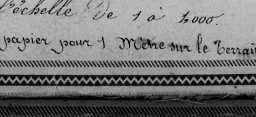 l'échelle De 1 à 2000.
papier pour 1 Mètre sur le Terrai